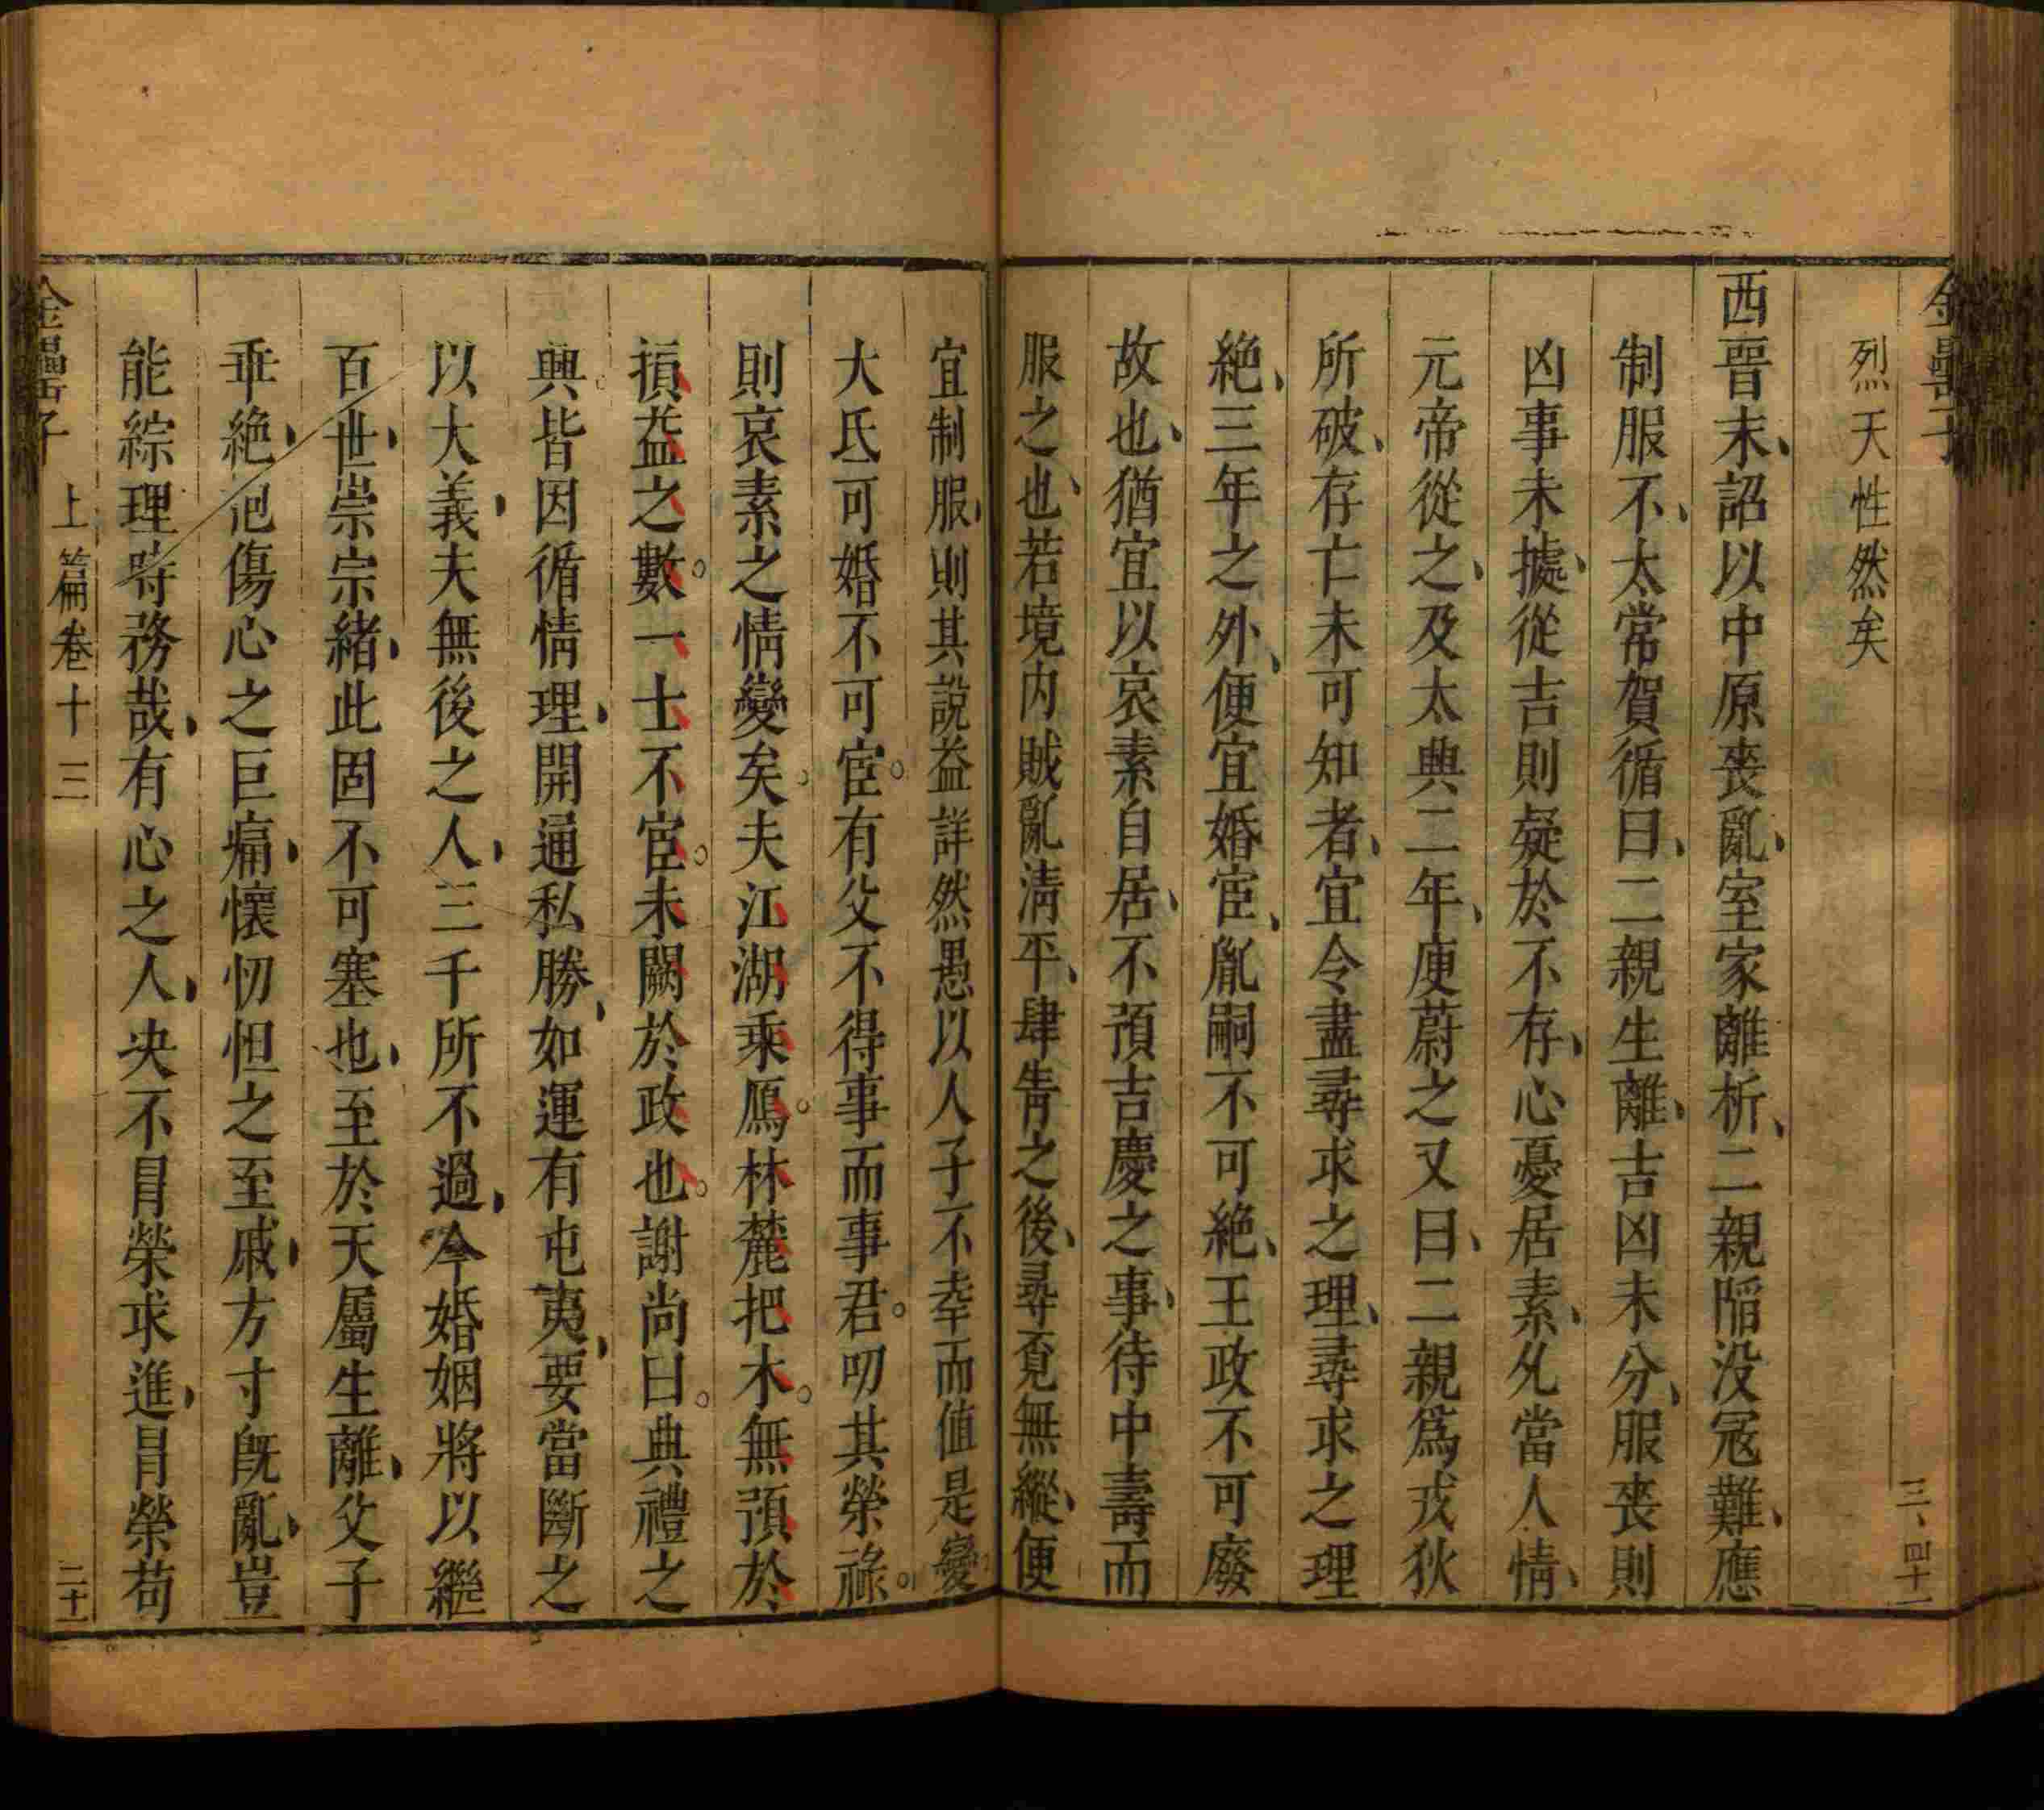 金罍子
三、四十一
烈天性然矣
西晉末、詔以中原喪亂、室家離析、二親陷没冦難、應
制服不、太常賀循曰、二親生離、吉凶未分、服喪則
凶事未據、從吉則疑於不存、心憂居素、允當人情、
元帝從之、及太典二年、庾蔚之又曰、二親爲戎狄
所破、存亡未可知者、宜令盡尋求之理、尋求之理
絶、三年之外、便宜婚宦、胤嗣不可絶、王政不可廢
故也、猶宜以哀素自居、不預吉慶之事、待中壽而
服之也、若境内賊亂淸平、肆眚之後、尋覔無縱、便
宜制服、則其說益詳然愚以人子不幸而值是變
大氐可婚不可宦。有父不得事而事君。叨其榮祿。
則哀素之情變矣。夫江湖乘鴈。林麓把木。無預於
損益之數。一士不宦。未闕於政也。謝尚曰。典禮之
興皆因循情理、開通私勝、如運有屯夷、要當斷之
以大義、夫無後之人、三千所不過、今婚姻將以繼
百世、崇宗緖、此固不可塞也、至於天屬生離、父子
乖絶、傷心之巨痛、懷忉怛之至戚、方寸旣亂、豈
能綜理時務哉、有心之人、决不冐榮求進、冐榮苟
金罍子
上篇卷十三
二十一